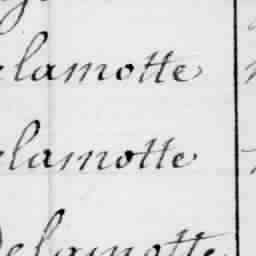 elamotte
elamotte
Delamotte